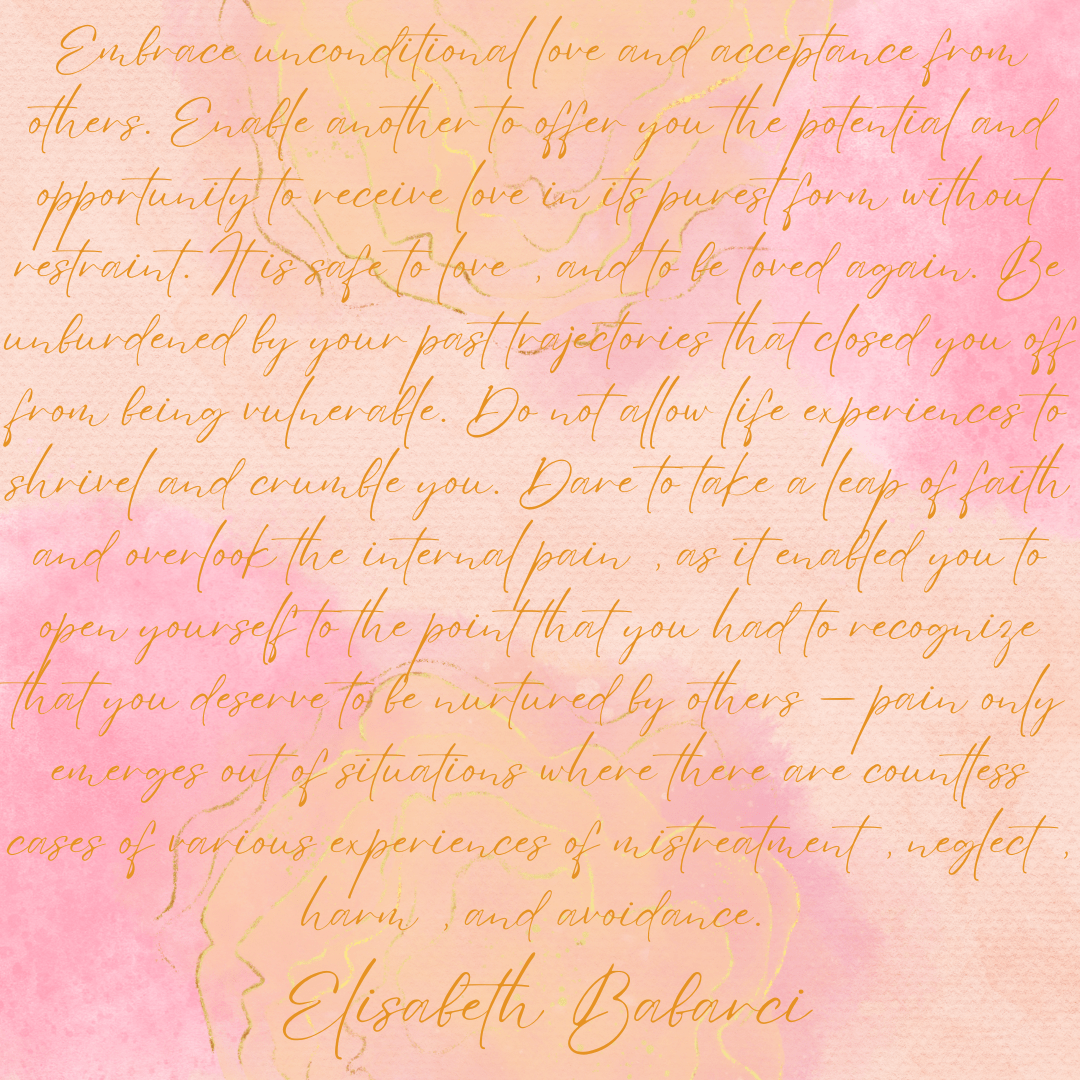 Embrace unconditional love and acceptance from
others. Enable another to offer you the potential and
opportunity to receive love in its purest form without
restraint. It is safe to love , and to be loved again. Be
unburdened by your past trajectories that closed you off
from being vulnerable. Do not allow life experiences to
shrivel and crumble you. Dare to take a leap of faith
and overlook the internal pain , as it enabled you to
open yourself to the point that you had to recognize
that you deserve to be nurtured by others – pain only
emerges out of situations where there are countless
cases of various experiences of mistreatment , neglect ,
harm , and avoidance.
Elisabeth Babarci